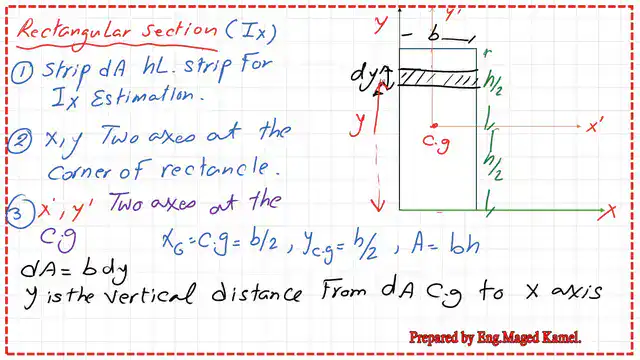 Rectangular section (Ix)
① Strip dA hL. strip For
Ix Estimation.
② x,y Two axes at the
corner of rectancle.
③ x', y' Two axes at the
C.g
xG=C.g=b/2, yc.g=h/2, A=bh
dA=bdy
y is the vertical distance From dA C.g to x axis
y
y'
b
dy
h/2
y
x'
C.g
h/2
X
Prepared by Eng.Maged Kamel.